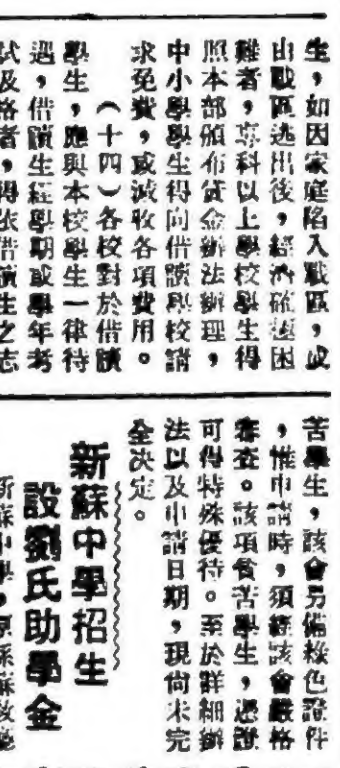 生，如因家庭陷入戰區，或
由戰區逃出後，經濟確極困
難者，專科以上學校學生得
照本部頒布貸金辦法辦理，
中小學學生得向借讀學校請
求免費，或減收各項費用。
（十四）各校對於借讀
學生，應與本校學生一律待
遇，借讀生經學期或學年考
試及格者，得依借讀生之志
苦學生，該會另備棪色證件
，惟申請時，須經該會嚴格
審查。該項貧苦學生，憑證
可得特殊優待。至於詳細辦
法以及申請日期，現尚未完
全決定。
新蘇中學招生
設劉氏助學金
新蘇中學，原係蘇教廳